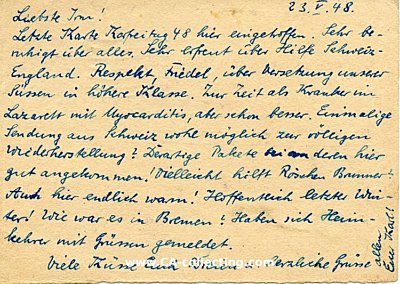 23.V.48.
Liebste Irm!
Letzte Karte Karfreitag 48 hier eingetroffen. Sehr be-
ruhigt über alles. Sehr erfreut über Hilfe Schweiz-
England. Respekt, Friedel, über Versetzung unserer
Süssen in höhere Klasse. Zur Zeit als Kranker im
Lazarett mit Myocarditis, aber schon besser. Einmalige
Sendung aus Schweiz wohl möglich zur völligen
Wiederherstellung? Derartige Pakete bei anderen hier
gut angekommen! Vielleicht hilft Röschen Brunner?
Auch hier endlich warm! Hoffentlich letzter Win-
ter! Wie war es in Bremen? Haben sich Heim-
kehrer mit Grüssen gemeldet
Viele Küsse Euch herzliche Grüsse allen
Euer Karl!
www.CA-collecting.com